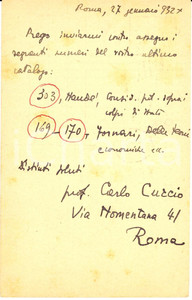 Roma, 27 gennaio 932 X
Prego inviarmi contro assegno i
seguenti numeri del vostro ultimo
catalogo:
303, Consid. pol. sopra i
colpi di Stato
169 - 170, Fornari, Delle
economiche ec.
Distinti saluti
prof. Carlo Curcio
Via Nomentana 41
Roma